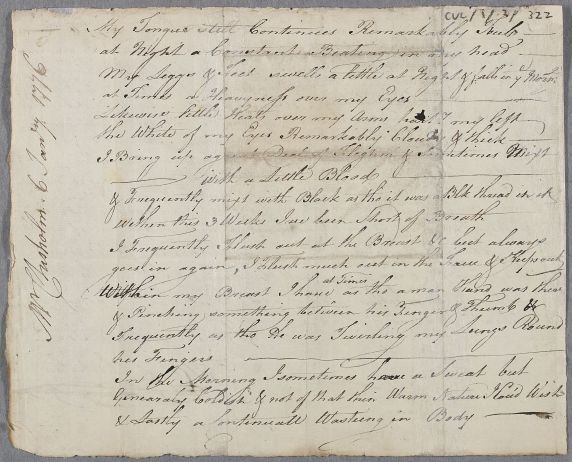 CUL/1/2/322
My Tongue still Continues Remarkably
at Night a Constant Beating in my head
My Leggs & Feet swells a little at Night & falls in ye Morn:
at Times a Heavyness over my Eyes
Likewise little Heats over my Arms
the White of my Eyes Remarkable Cloudy & thick
I Bring up a great Deal of Phlegm & Sometimes Mixt
with a Little Blood
& Frequently mixt with Black as tho it was a Blk thread in it
within this 3 Weeks Ive been Short of Breath
I Frequently Flush out at the Breast &c but always
goes in again, I Flush much out in the Face & Keeps out
Within my Breast I have at Times as tho a man Hand was there
& Pinching something between his Finger & Thumb &
Frequently as tho He was Twirling my Lungs Round
his Fingers
In the Morning I sometimes have a Sweat but
Generaly Coldish & not of that then Warm Nature I Coud Wish
& Lastly a Continuall Wasteing in Body
Mr Chisholm 6 Jany 1776